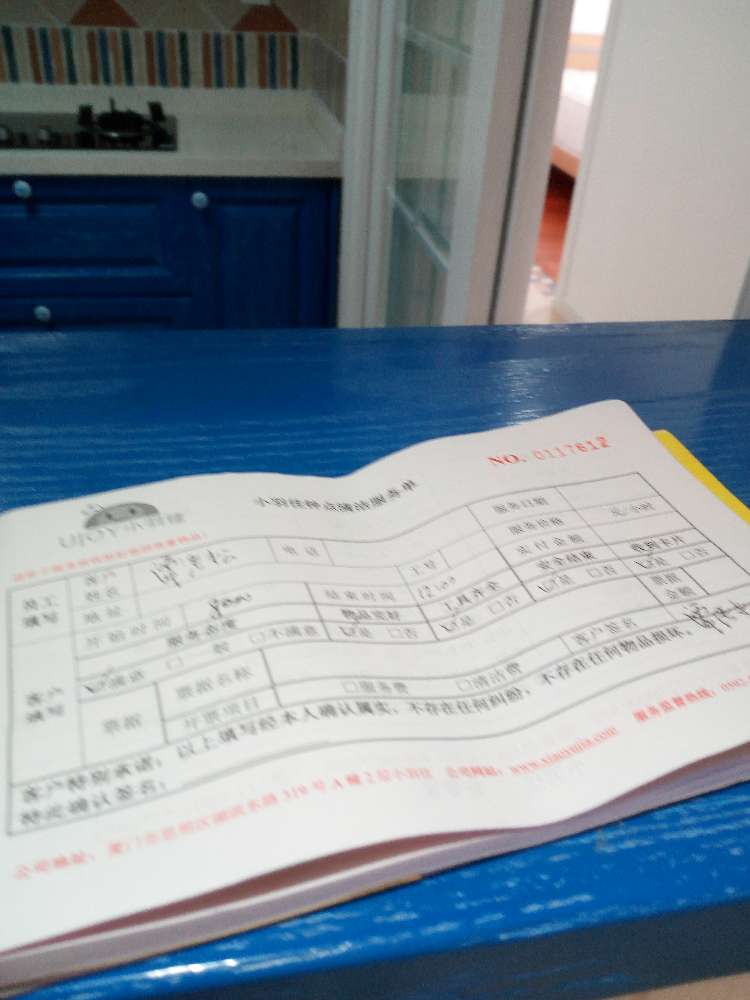 NO. 0117612
UJOY小羽佳
小羽佳钟点清洁服务单
员工填写 客户姓名 电话 工号 服务日期
地址 服务价格 元/小时
开始时间 8:00 结束时间 12:00 实付金额
客户填写 服务态度 物品完好 工具齐全 安全结束 收到卡片
☑满意 □一般 □不满意 ☑是 □否 ☑是 □否 ☑是 □否 ☑是 □否
票据 票据名称 票据金额
开票项目 □服务费 □清洁费 客户签名
客户特别承诺:以上填写经本人确认属实,不存在任何纠纷,不存在任何物品损坏。
特此确认签名:
公司地址:厦门市思明区湖滨东路319号A幢2层小羽佳 公司网站:www.xiaoyujia.com 服务监督热线:0592-